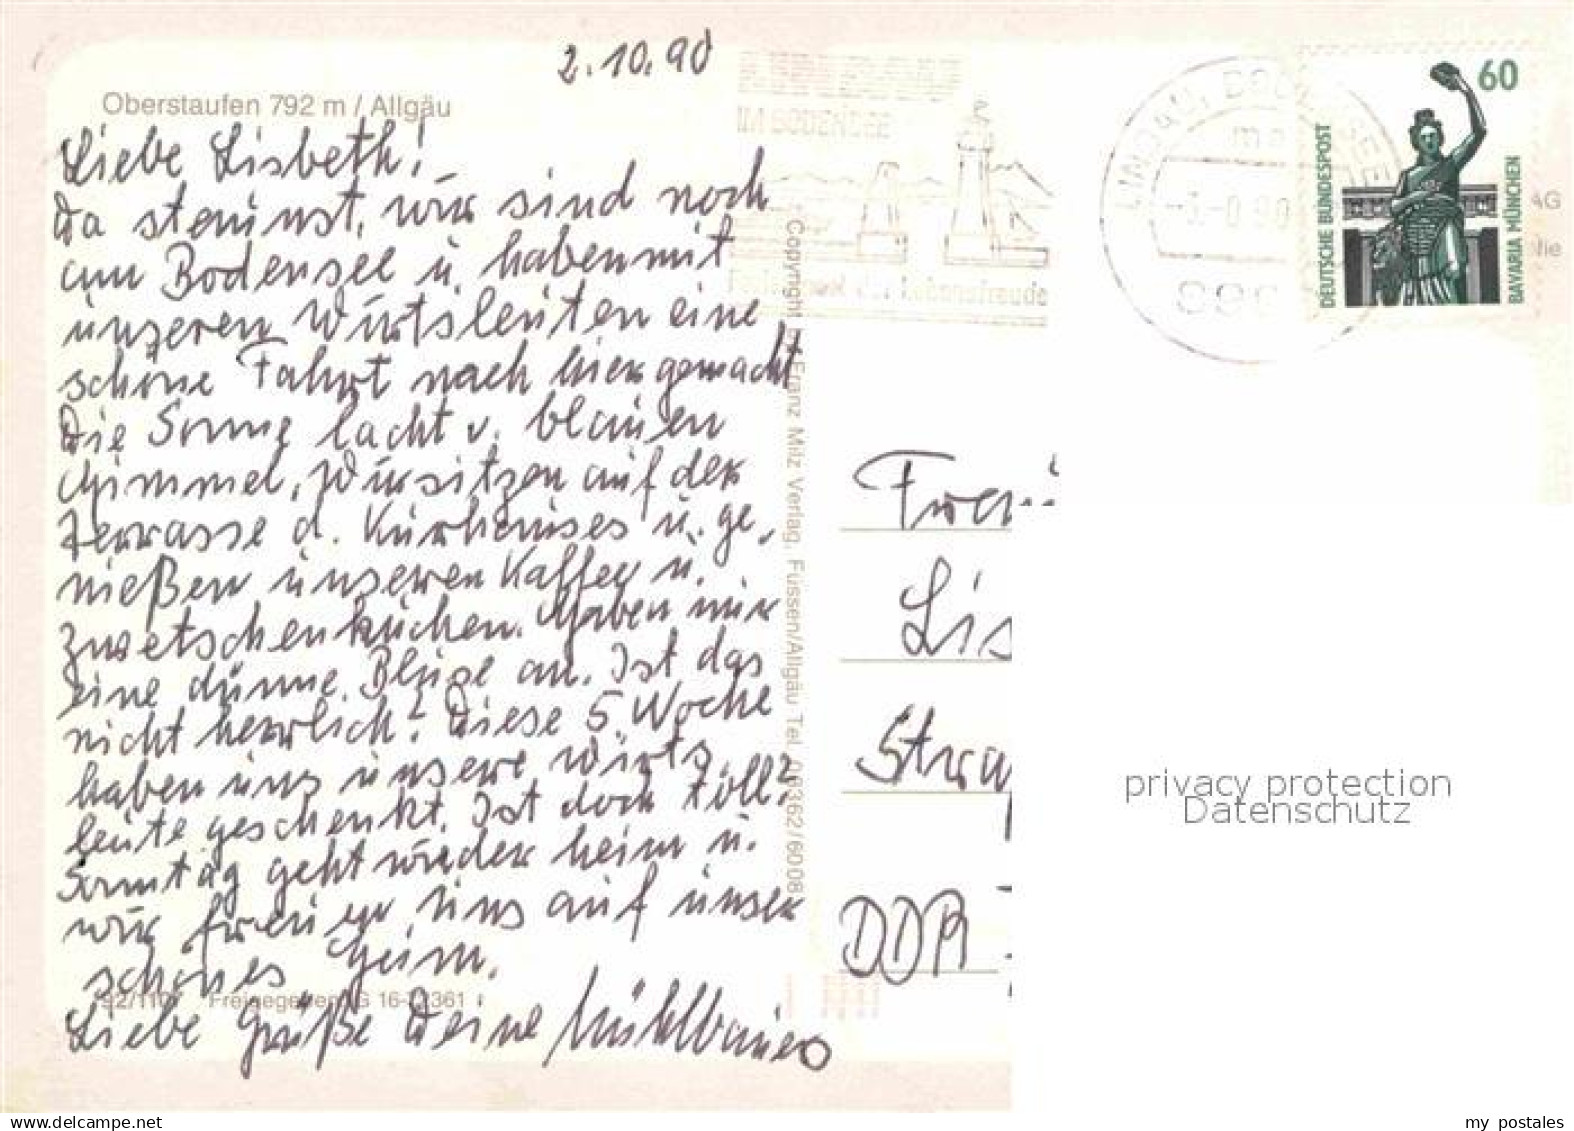 2.10.90
Oberstaufen 792 m / Allgäu
Liebe Lisbeth!
Da staunst, wir sind noch
am Bodensee u. haben mit
unseren Wirtsleuten eine
schöne Fahrt nach hier gemacht
Die Sonne lacht v. blauen
Himmel, Wir sitzen auf der
Terrasse d. Kurhauses u. ge-
nießen unseren Kaffee u.
Zwetschenkuchen. Haben nur
eine dünne Bluse an. Ist das
nicht herrlich? Diese 5. Woche
haben uns unsere Wirts-
leute geschenkt. Ist doch toll?
Sonntag geht wieder heim u.
wir freuen uns auf unser
schönes Heim.
92/110 Freigegeben G 16-7/2361
Liebe Grüße Deine Mühlbauer
Copyright by Franz Milz Verlag, Füssen/Allgäu Tel. 08362/6008
IM BODENSEE
der Lebensfreude
LINDAU, BODENSEE
90
DEUTSCHE BUNDESPOST
60
BAVARIA MÜNCHEN
AG
lie
Frau
Lis
Straß
DDR
privacy protection
Datenschutz
my postales